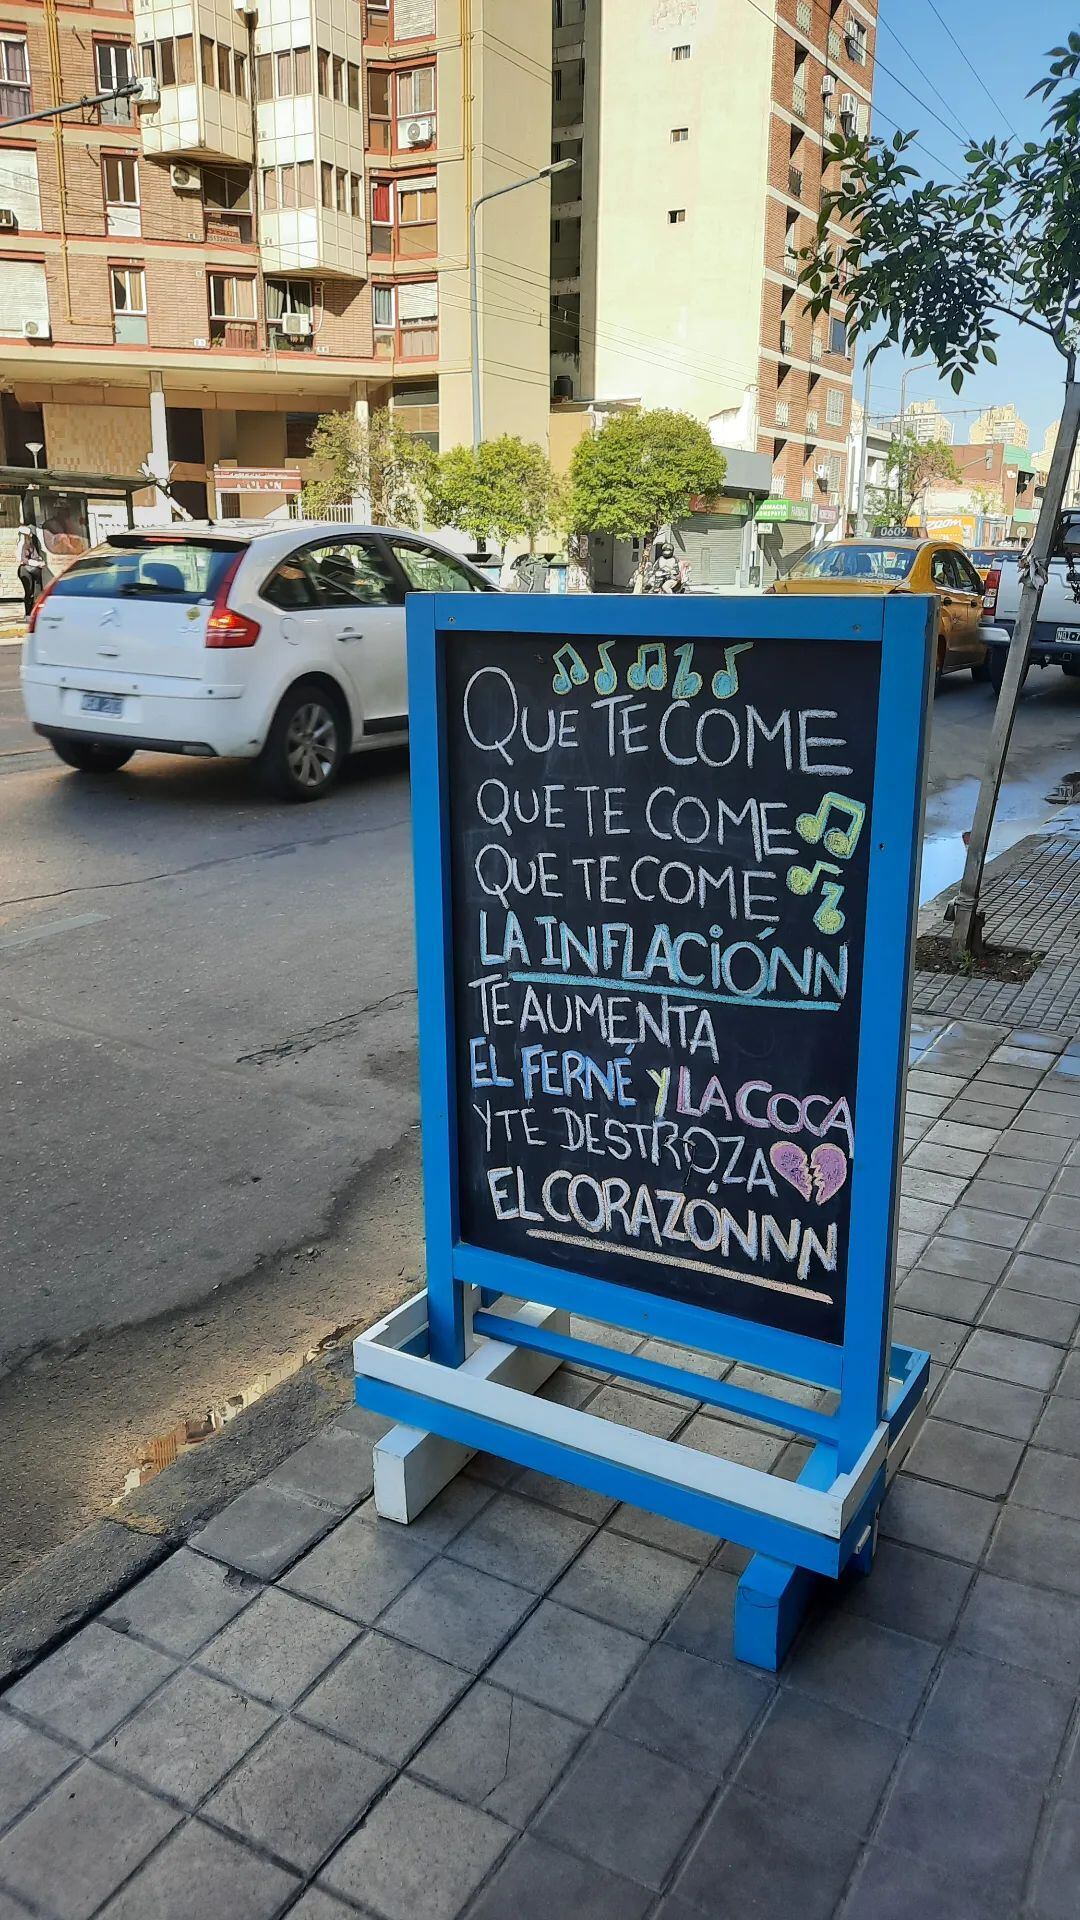 QUE TE COME
QUE TE COME
QUE TE COME
LA INFLACIÓNN
TE AUMENTA
EL FERNÉ Y LA COCA
Y TE DESTROZA
EL CORAZÓNNNN
0609
FARMACIA
zoom
COLON